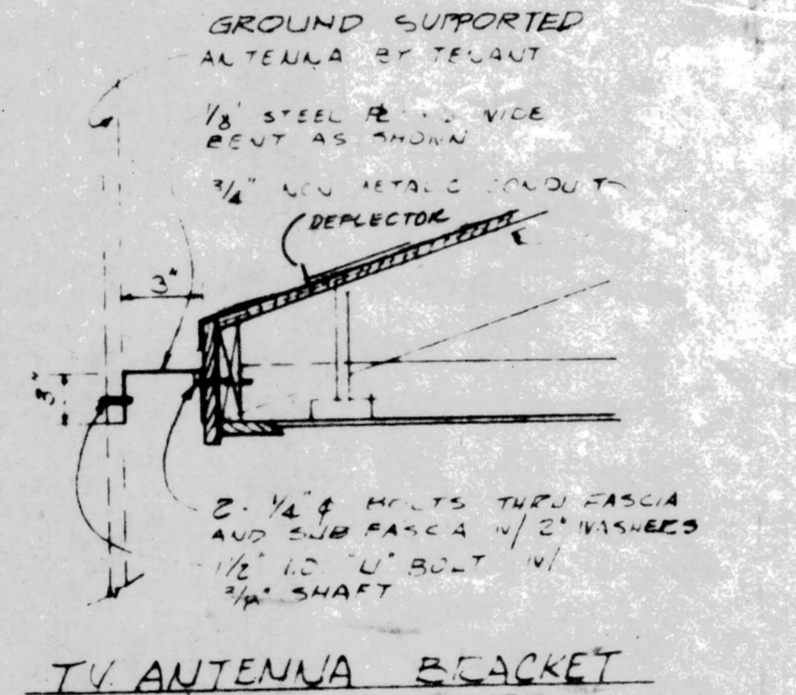 GROUND SUPPORTED
ANTENNA BY TENANT
1/8" STEEL PL WIDE
BENT AS SHOWN
3/4" NON METALIC CONDUIT
DEFLECTOR
3"
3"
2- 1/4" ϕ BOLTS THRU FASCIA
AND SUB FASCIA W/ 2" WASHERS
1 1/2" I.D. "U" BOLT W/
SHAFT
TV. ANTENNA BRACKET